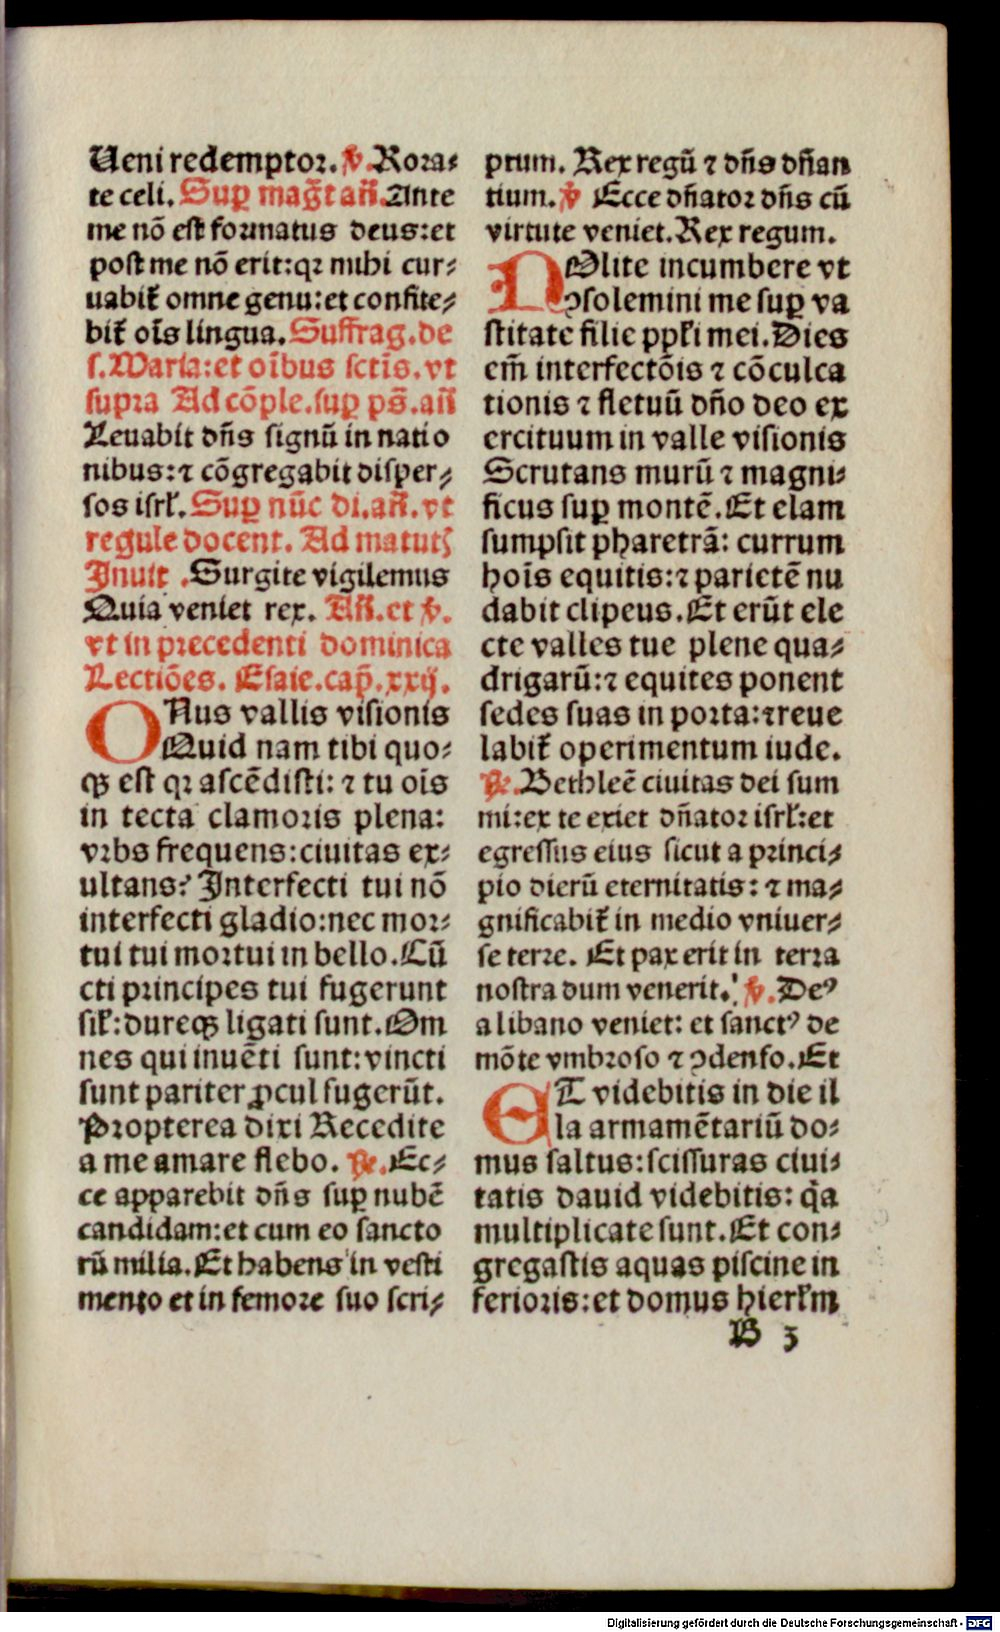 Ueni redemptor. ℣. Rora⸗
te celi. Suꝑ mag̃t añ. Ante
me nō est formatus deus: et
post me nō erit: qꝛ mihi cur⸗
uabit̃ omne genu: et confite⸗
bit̃ oīs lingua. Suffrag. de
s. Maria: et oībus sctīs. vt
supra Ad cōple. suꝑ ps̄. añ
Leuabit dn̄s signū in natio
nibus: ⁊ cōgregabit disper⸗
sos isrł. Suꝑ nūc di. añ. vt
regule docent. Ad matutꝭ
Inuit. Surgite vigilemus
Quia veniet rex. Añ. et ℣.
vt in precedenti dominica
Lectiōes. Esaie. cap̄. xxij.
ONus vallis visionis
Quid nam tibi quo⸗
qꝫ est qꝛ ascēdisti: ⁊ tu oīs
in tecta clamoris plena:
vrbs frequens: ciuitas ex⸗
ultans? Interfecti tui nō
interfecti gladio: nec mor⸗
tui tui mortui in bello. Cū
cti principes tui fugerunt
sil̃: dureqꝫ ligati sunt. Om
nes qui inuēti sunt: vincti
sunt pariter ꝓcul fugerūt.
Propterea dixi Recedite
a me amare flebo. ℟. Ec⸗
ce apparebit dn̄s suꝑ nubē
candidam: et cum eo sancto
rū milia. Et habens in vesti
mento et in femore suo scri⸗
ptum. Rex regū ⁊ dn̄s dn̄an
tium. ℣ Ecce dn̄ator dn̄s cū
virtute veniet. Rex regum.
NOlite incumbere vt
ꝯsolemini me suꝑ va
stitate filie ppl̃i mei. Dies
em̄ interfectōis ⁊ cōculca
tionis ⁊ fletuū dn̄o deo ex
ercituum in valle visionis
Scrutans murū ⁊ magni⸗
ficus suꝑ montē. Et elam
sumpsit pharetrā: currum
hoīs equitis: ⁊ parietē nu
dabit clipeus. Et erūt ele
cte valles tue plene qua⸗
drigarū: ⁊ equites ponent
sedes suas in porta: ⁊ reue
labit̃ operimentum iude.
℟. Bethleē ciuitas dei sum
mi: ex te exiet dn̄ator isrł: et
egressus eius sicut a princi⸗
pio dierū eternitatis: ⁊ ma⸗
gnificabit̃ in medio vniuer⸗
se terre. Et pax erit in terra
nostra dum venerit. ℣. Deꝰ
a libano veniet: et sanctꝰ de
mōte vmbroso ⁊ ꝯdenso. Et
ET videbitis in die il
la armamētariū do⸗
mus saltus: scissuras ciui⸗
tatis dauid videbitis: q̄a
multiplicate sunt. Et con⸗
gregastis aquas piscine in
ferioris: et domus hierl̃m
B 3
Digitalisierung gefördert durch die Deutsche Forschungsgemeinschaft - DFG